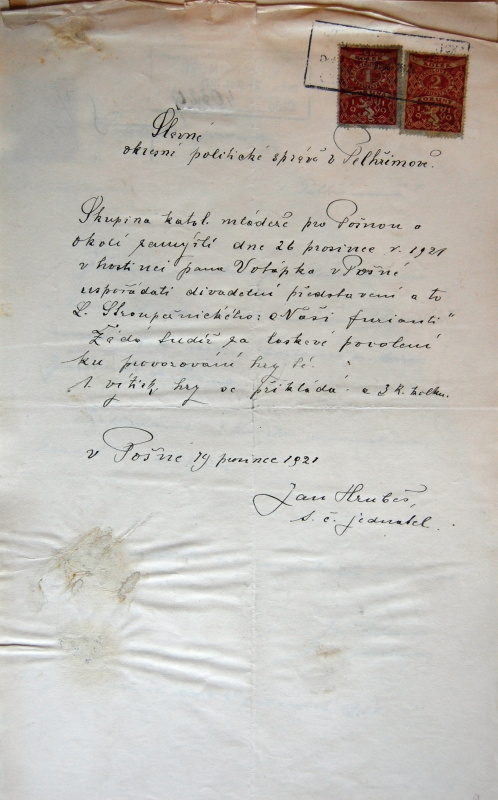 KOLEK
1
KOLEK
2
Slavné
okresní politické správě v Pelhřimově.
Skupina katol. mládeže pro Pošnou a
okolí zamýšlí dne 26 prosince r. 1921
v hostinci pana Votápka v Pošné
uspořádati divadelní představení a to
L. Stroupežnického: „Naši furianti"
Žádá tudíž za laskavé povolení
ku provozování hry té.
1 výtisk hry se přikládá a 3 K. kolku.
v Pošné 19 prosince 1921
Jan Hrubeš,
t. č. jednatel.